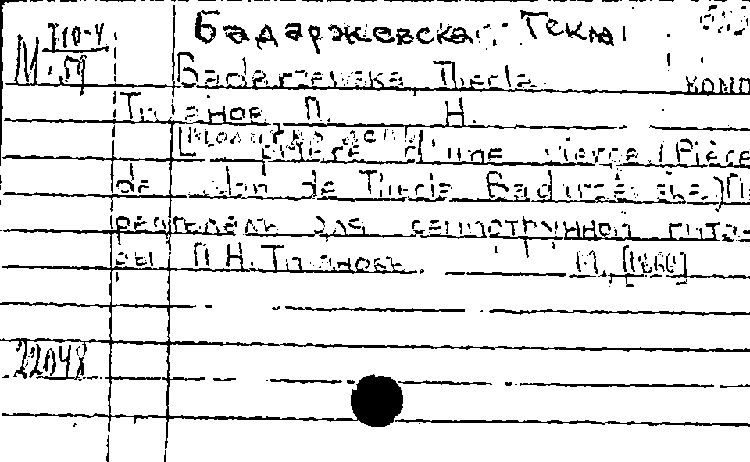 Бадаржевская, Текла
М Т10-4
59
Badarzewska, Thecla комп
Тиханов П. Н.
[Молитва девы]
prière d'une vierge. (Pièce
de salon de Thecla Badarzewska.) П
ределалъ для семиструнной гита-
ры П. Н. Тихановъ. М., [1860]
22048